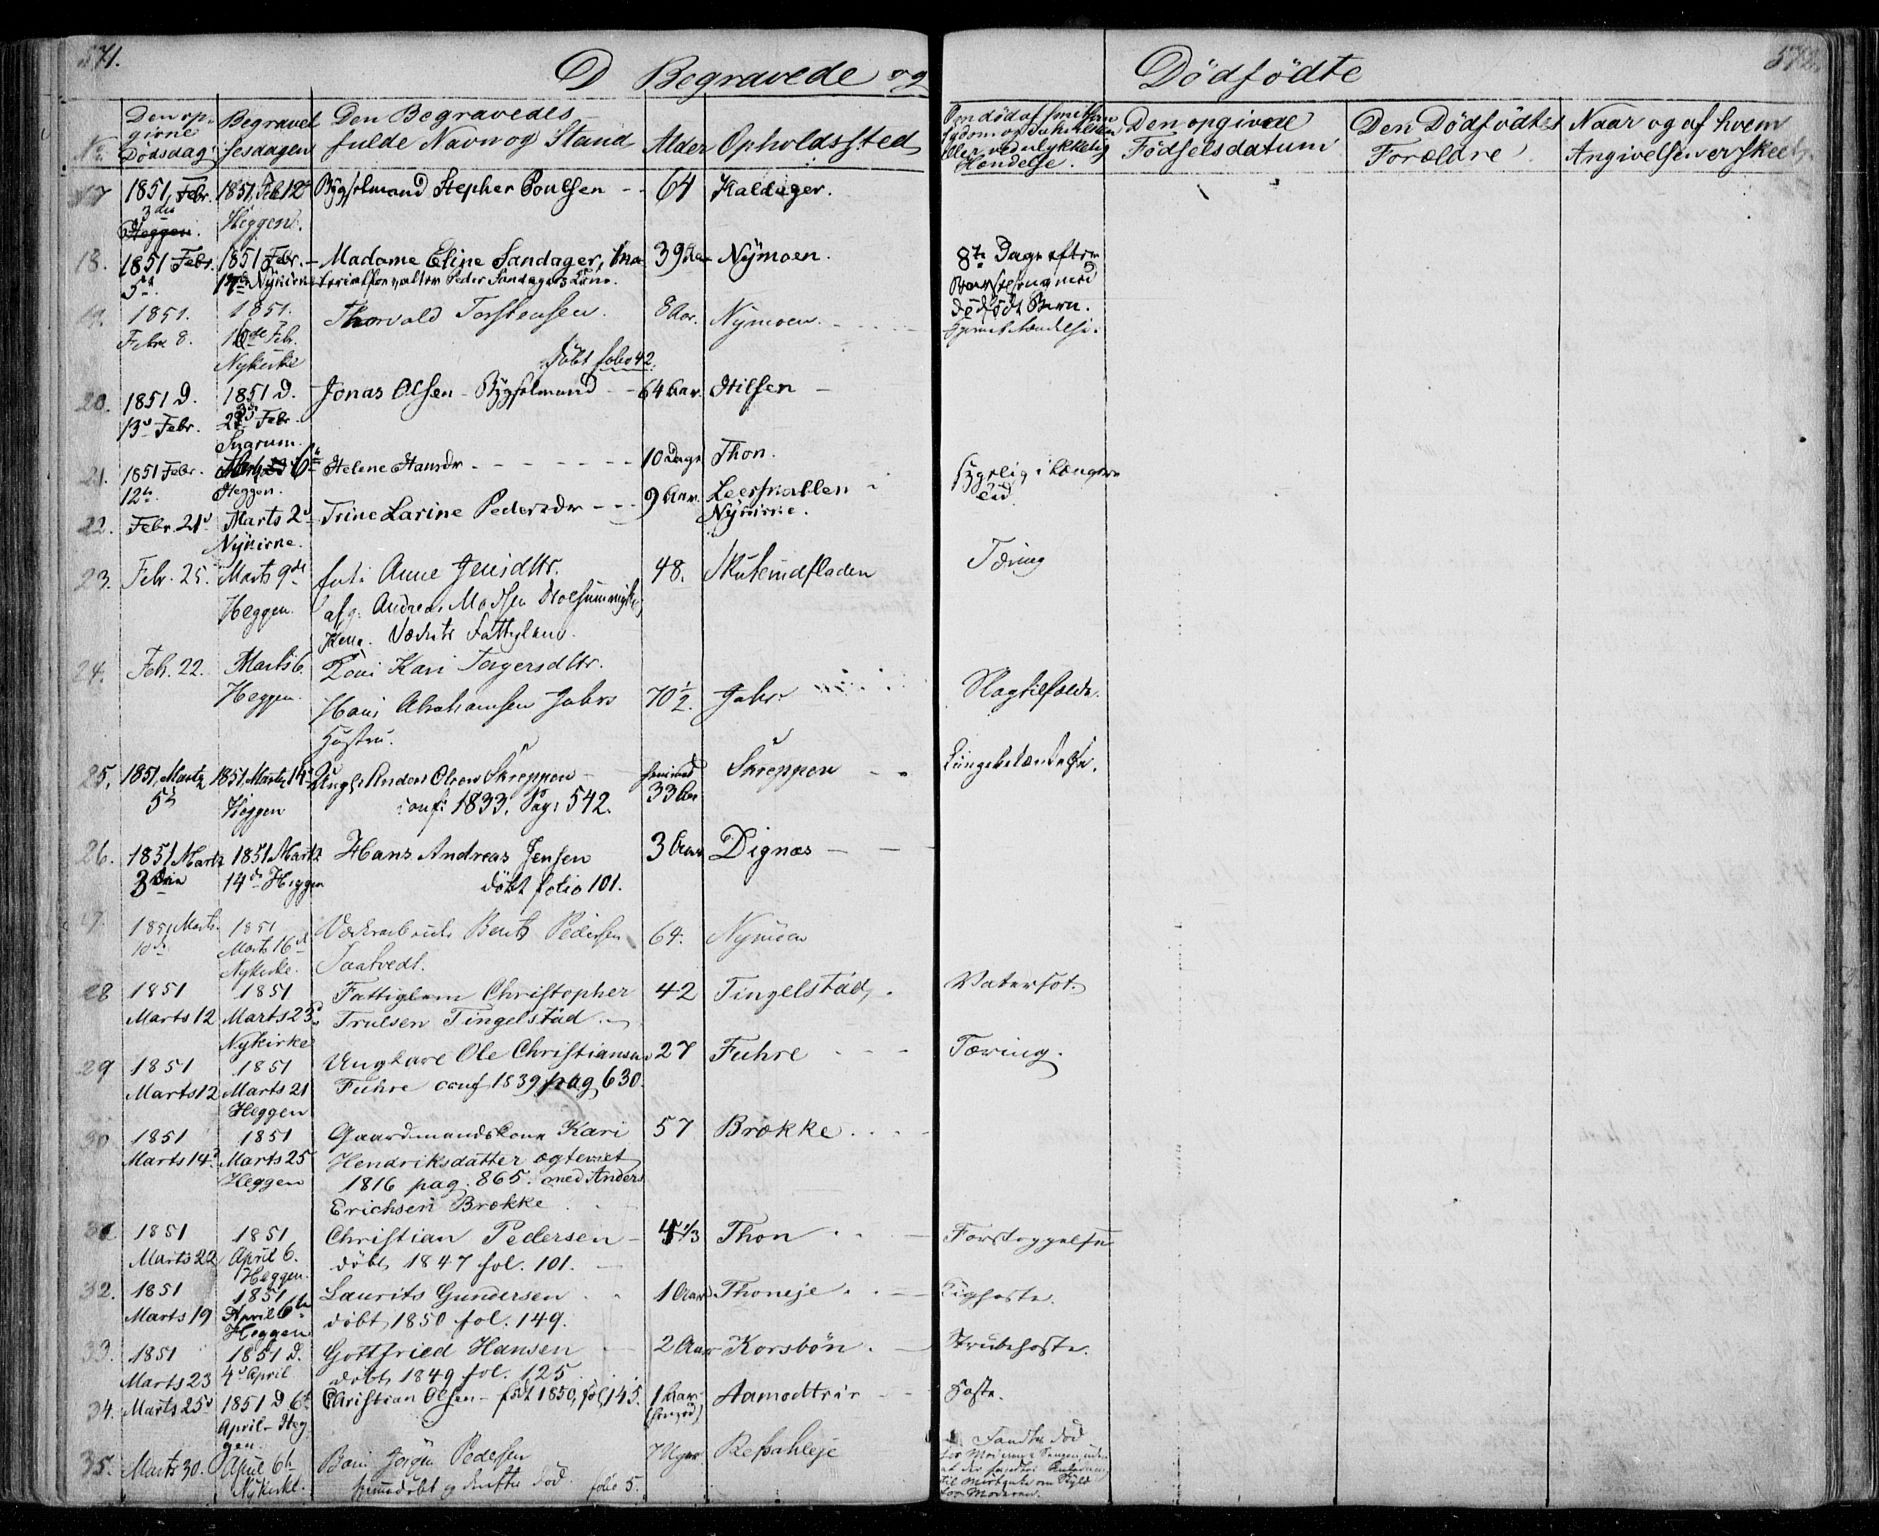 571.
D Begravede og
Dödfödte
572.
No.
Den op-
givne
Dödsdag
Begravel
sesdagen
Den Begravedes
fulde Navn og Stand
Alder
Opholdssted
Hendelse.
Den opgivne
Födselsdatum
Den Dödfödtes
Forældre
Naar og af hvem
Angivelsen er skeet
17 1851, Febr. 1851, Feb 12te Bygselmand Stepher Poulsen -- 64 Kaldager.
3die
Heggen. Heggen.
18. 1851 Febr. 1851 Febr. – Madame Eline Sandager, Ma 39 Aar Nymoen. 8te Dagen efter
5te Nykirke terialforvalter Peder Sandagers Kone. Barselseng med
dödfödt Barn.
19. 1851. 1851. Thorvald Torstensen. 8 Aar. Nymoen.
Febr 8. 16de Febr.
Nykirke döbt folio 42.
20. 1851 D. 1851 D. Jonas Olsen – Bygselmand -- 64 Aar. Hilsen –
13de Febr. Febr.
Snarum.
21. 1851 Febr. 6te Helene Hansdr 10 Dage Thon. sygelig i længere
12te Heggen. Tid
22. Febr. 21de Marts 2de Trine Larine Pedersdr --- 9 Aar.
Nykirke. Nykirke.
23. Febr. 25. Marts 9de Anne Jensdttr. 48. Skuterudfladen Tæring
Heggen. afg. Andreas Madsen
Værkets Fattiglem.
24. Feb. 22. Marts 6. Kone Kari Torgersdttr.
Heggen. Hans Abrahamsen Jahrs 70½. Jahr. Slagtilfælde.
Hustru.
25. 1851, Martz 1851, Martz 14de Ungk. Anders Olsen Skreppen – Skreppen -- Lungebetændelse.
5te Heggen conf: 1833. Pag: 542. 33 Aar
26. 1851 Martz 1851 Martz Hans Andreas Jensen 3 Aar Dignæs –
3die 14de Heggen döbt folio 101.
27. 1851 Marts. 1851 Bent Pedersen 64. Nymoen
10de Marts 16de
Nykirke. Taatvedt.
28 1851 1851 Fattiglem Christopher 42 Tingelstad. Vatersot.
Marts 12 Marts 23de Trulsen Tingelstad.
Nykirke
29 1851 1851 Ungkare Ole Christiansen 27 Fuhre Tæring.
Marts 12 Marts 21 Fuhre conf 1839 pag 630.
Heggen
30 1851 1851 Gaardmandskone Kari 57 Brække.
Marts 14de Marts 25 Hendriksdatter ægteviet
Heggen 1816 pag. 865. med Anders
Erichsen Brække
31 1851 1851 Christian Pedersen – 4⅓ Thon Forstoppelse
Marts 22 April 6. döbt 1847 fol. 101.
Heggen.
32. 1851 1851 Laurits Gundersen 1 Aar Thoneje Kighoste.
Marts 19 April 6te döbt 1850 fol. 149.
Heggen
33. 1851 1851 D. Gottfried Hansen 2 Aar Korsbön. Strubehoste.
Marts 23 4de April döbt 1849 fol. 125
34. Marts 25de 1851 D 6te Christian Olsen – födt 1850, fol 145. 1 Aar Aamodteie Hoste.
April – Heg
gen.
35. Marts 30. April 6te Barn Jørgen Pedersen 7 Uger Fandtes död
Nykirke. hjemmedöbt og derefter död. folio 5.
hos Moderen i Sengen, uden
til Mistanke om Skyld
hos Moderen.